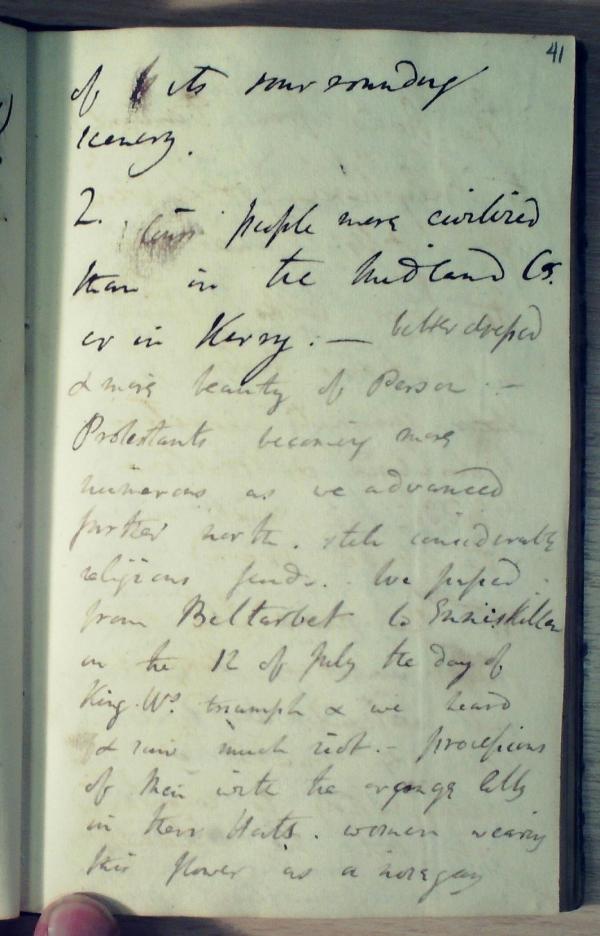 41
of its surrounding
scenery.
2. people more civilized
than in the Midland Cs.
or in Kerry. — better dressed
& more beauty of Person. -
Protestants becoming more
numerous as we advanced
further north. still considerable
religious feuds. We passed
from Belturbet to Enniskillen
on the 12 of July the day of
King Ws. triumph & we heard
& saw much riot. - processions
of Men with the orange lilly
in their Hats. women wearing
this flower as a nosegay